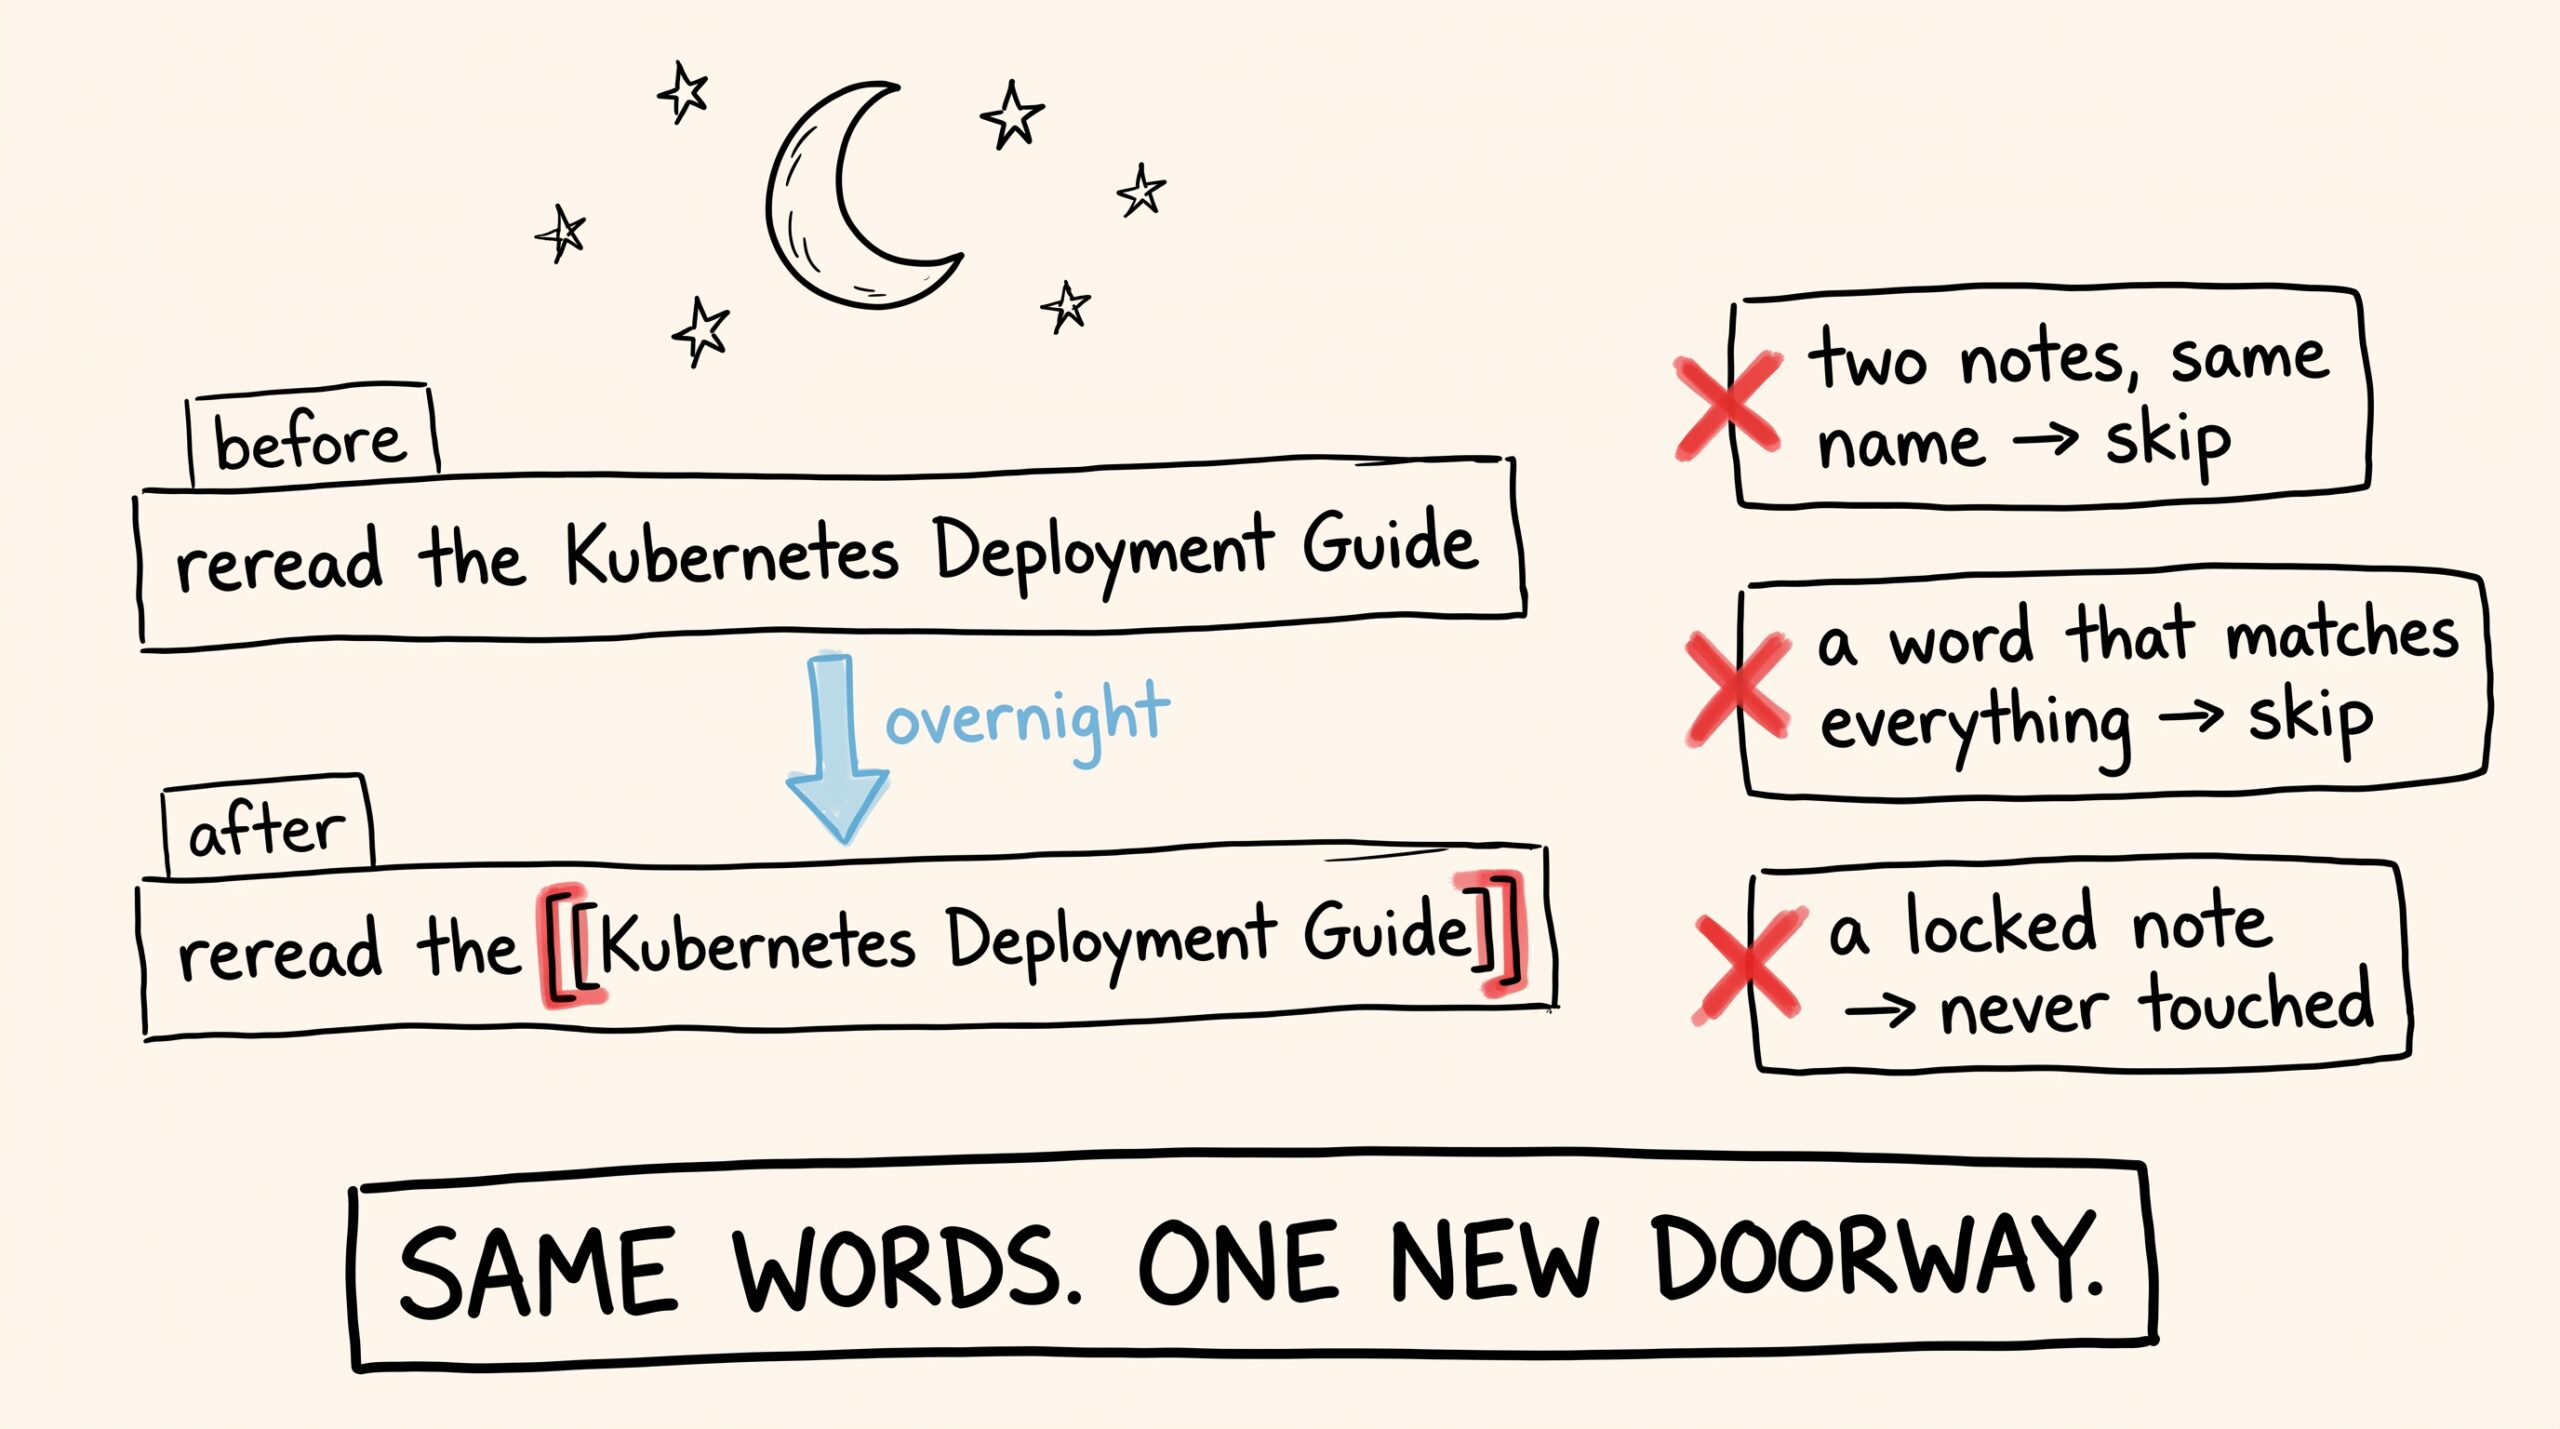 before
reread the Kubernetes Deployment Guide
overnight
after
reread the [[Kubernetes Deployment Guide]]
two notes, same
name → skip
a word that matches
everything → skip
a locked note
→ never touched
SAME WORDS. ONE NEW DOORWAY.